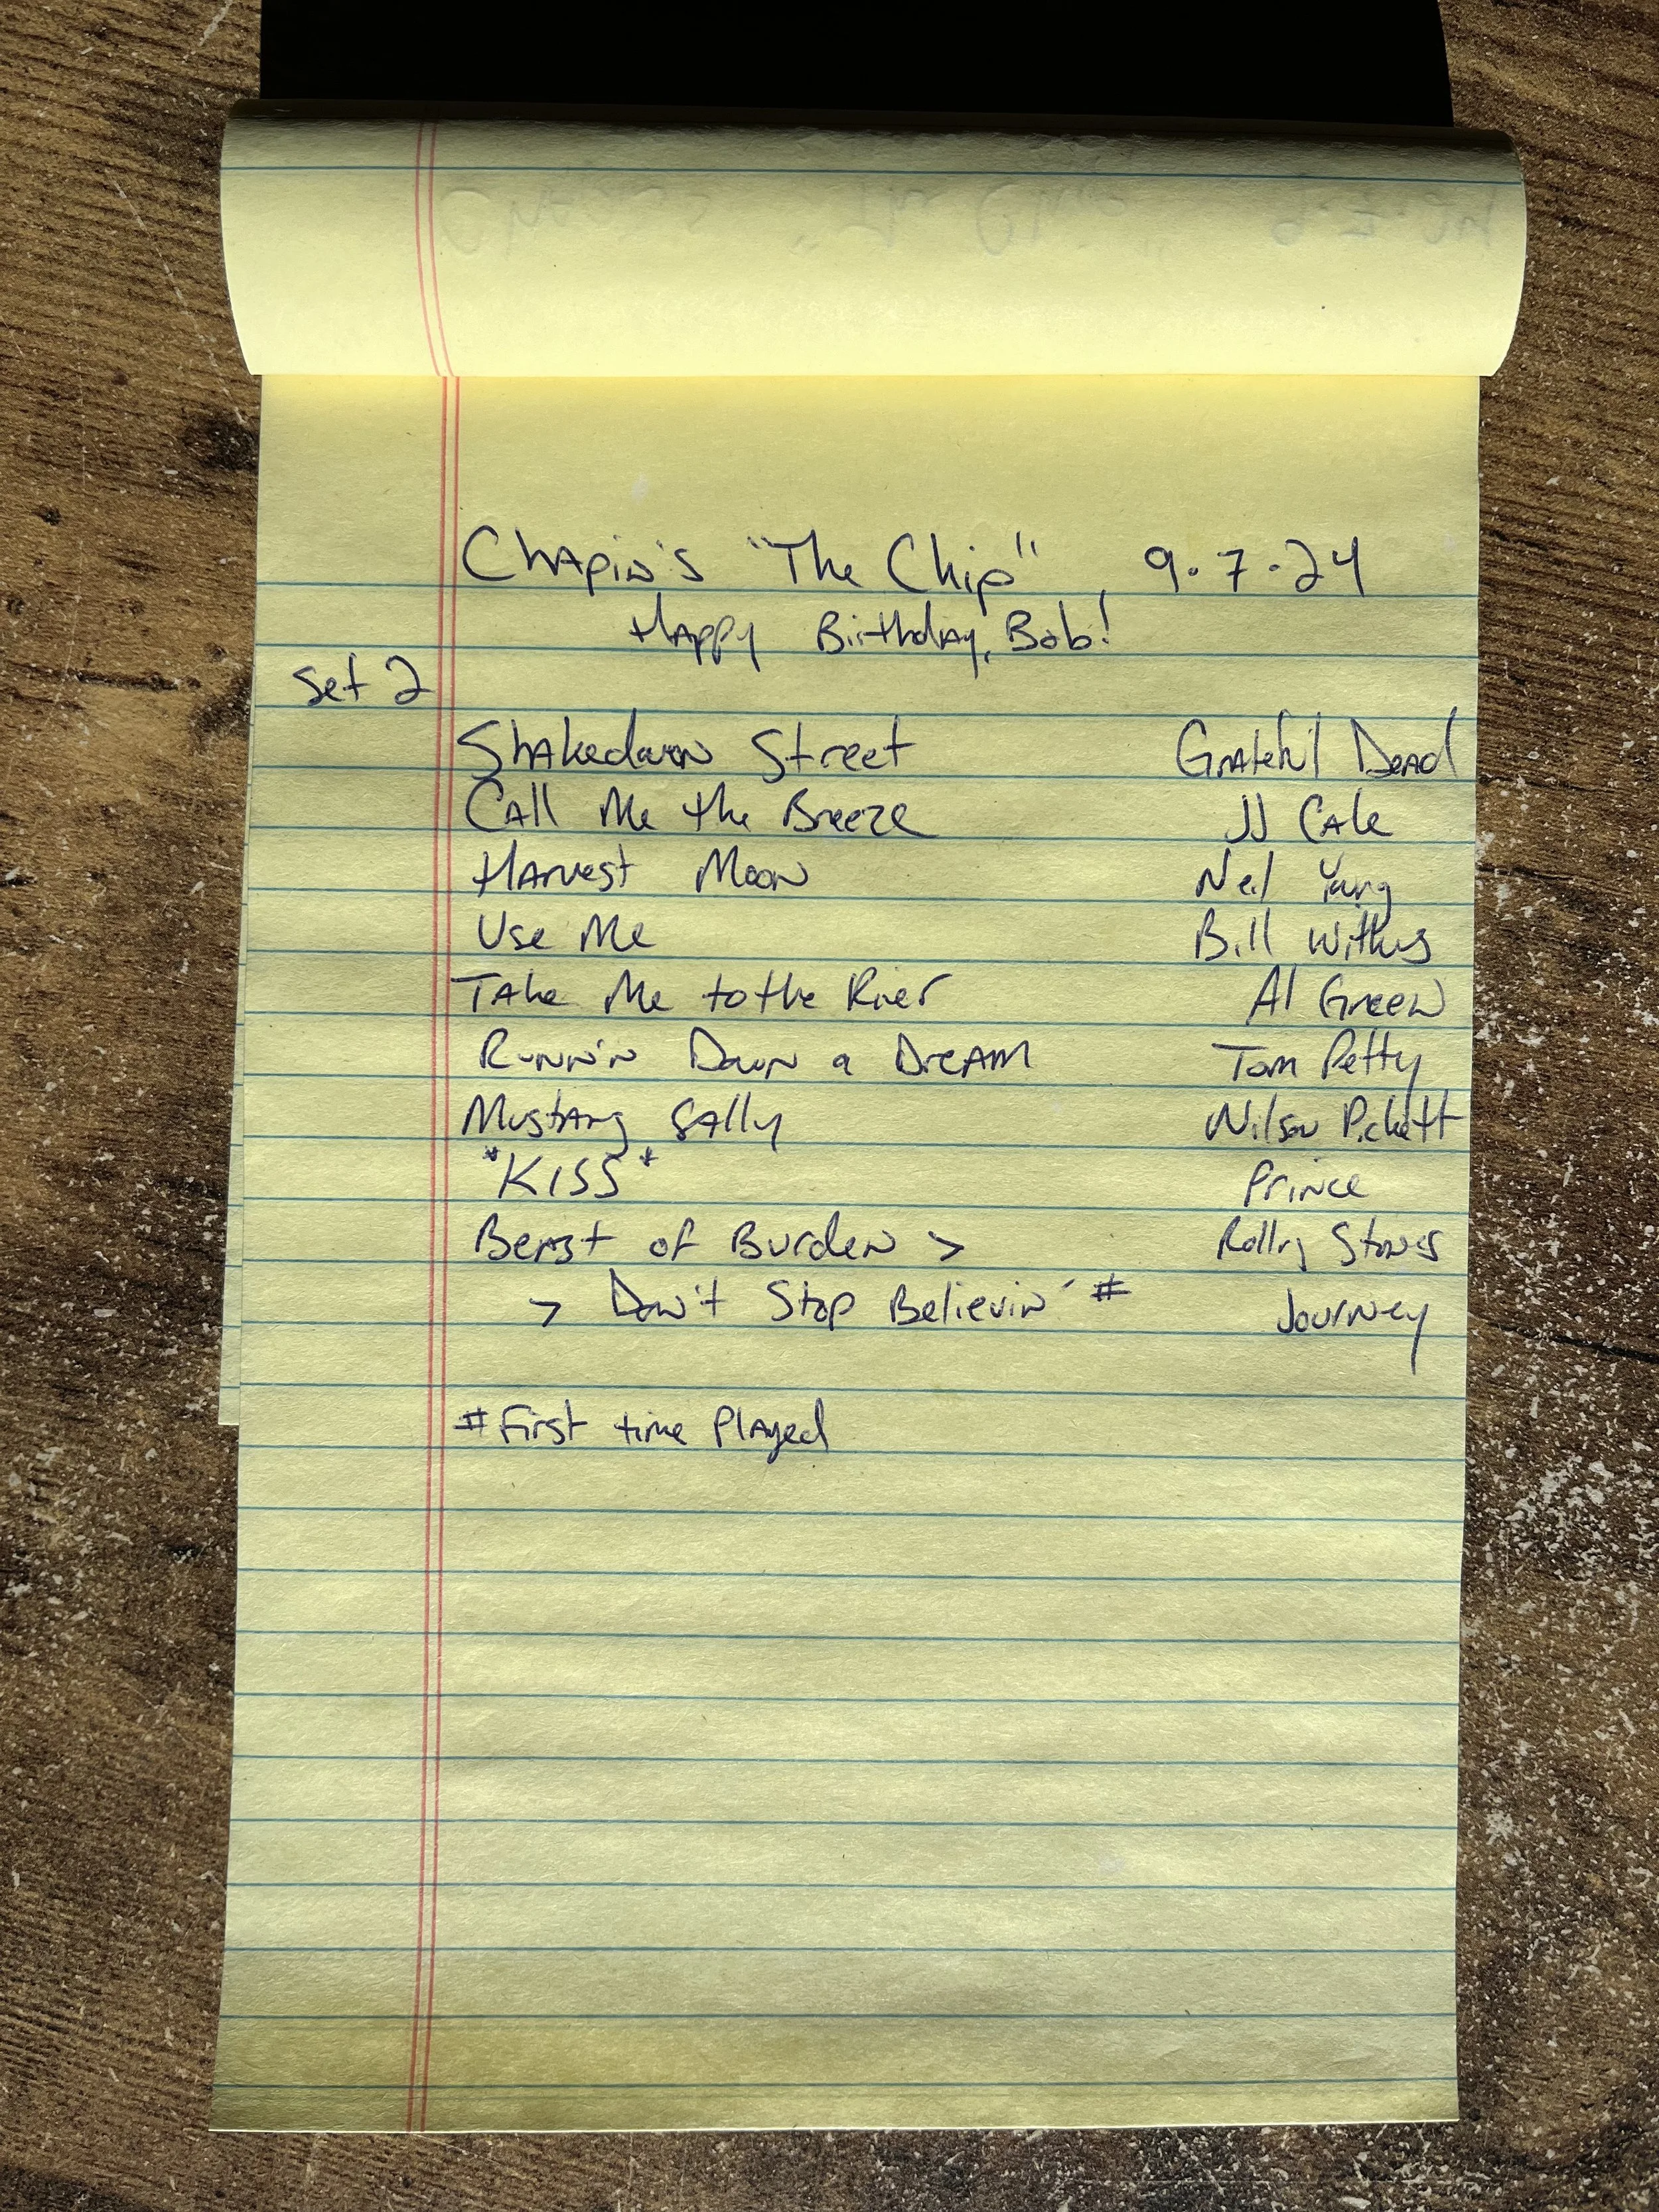 Chapin's "The Chip", 9.7.24
Happy Birthday, Bob!
Set 2
Shakedown Street Grateful Dead
Call Me the Breeze JJ Cale
Harvest Moon Neil Young
Use Me Bill Withers
Take Me to the River Al Green
Runnin' Down a Dream Tom Petty
Mustang Sally Wilson Pickett
*KISS* Prince
Beast of Burden > Rolling Stones
> Don't Stop Believin' # Journey
# First time Played